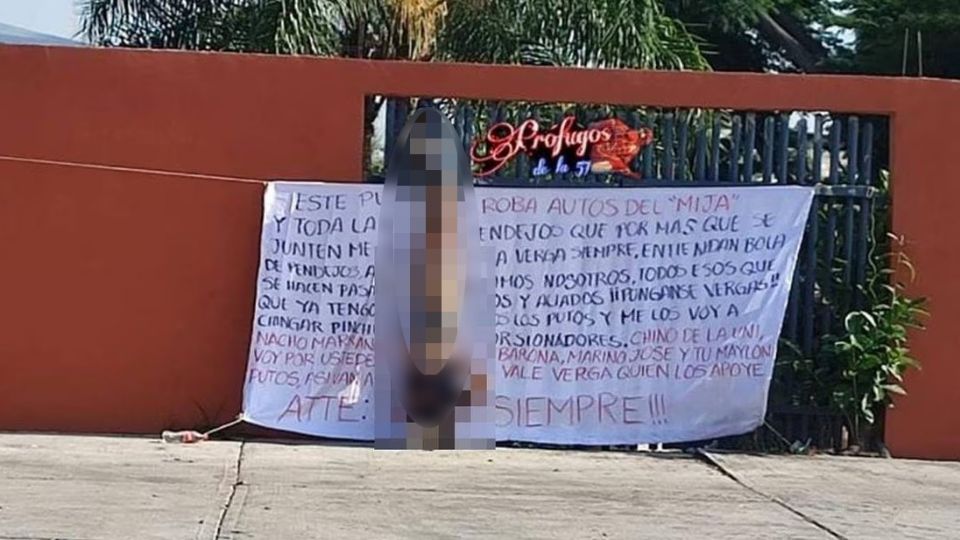 Prófugos
de la 57
ESTE ROBA AUTOS DEL "MIJA"
Y TODA LA PENDEJOS QUE POR MAS QUE SE
JUNTEN ME A VERGA SIEMPRE, ENTIENDAN BOLA
DE PENDEJOS, NOSOTROS, TODOS ESOS QUE
SE HACEN Y ALIADOS ¡¡PUNGANSE VERGAS!!
QUE YA TENGO LOS PUTOS Y ME LOS VOY A
CHINGAR CHINO DE LA UNI,
NACHO BARONA, MARINO JOSE Y TU MAYLON
VOY POR VALE VERGA QUIEN LOS APOYE
PUTOS,
ATTE: SIEMPRE!!!